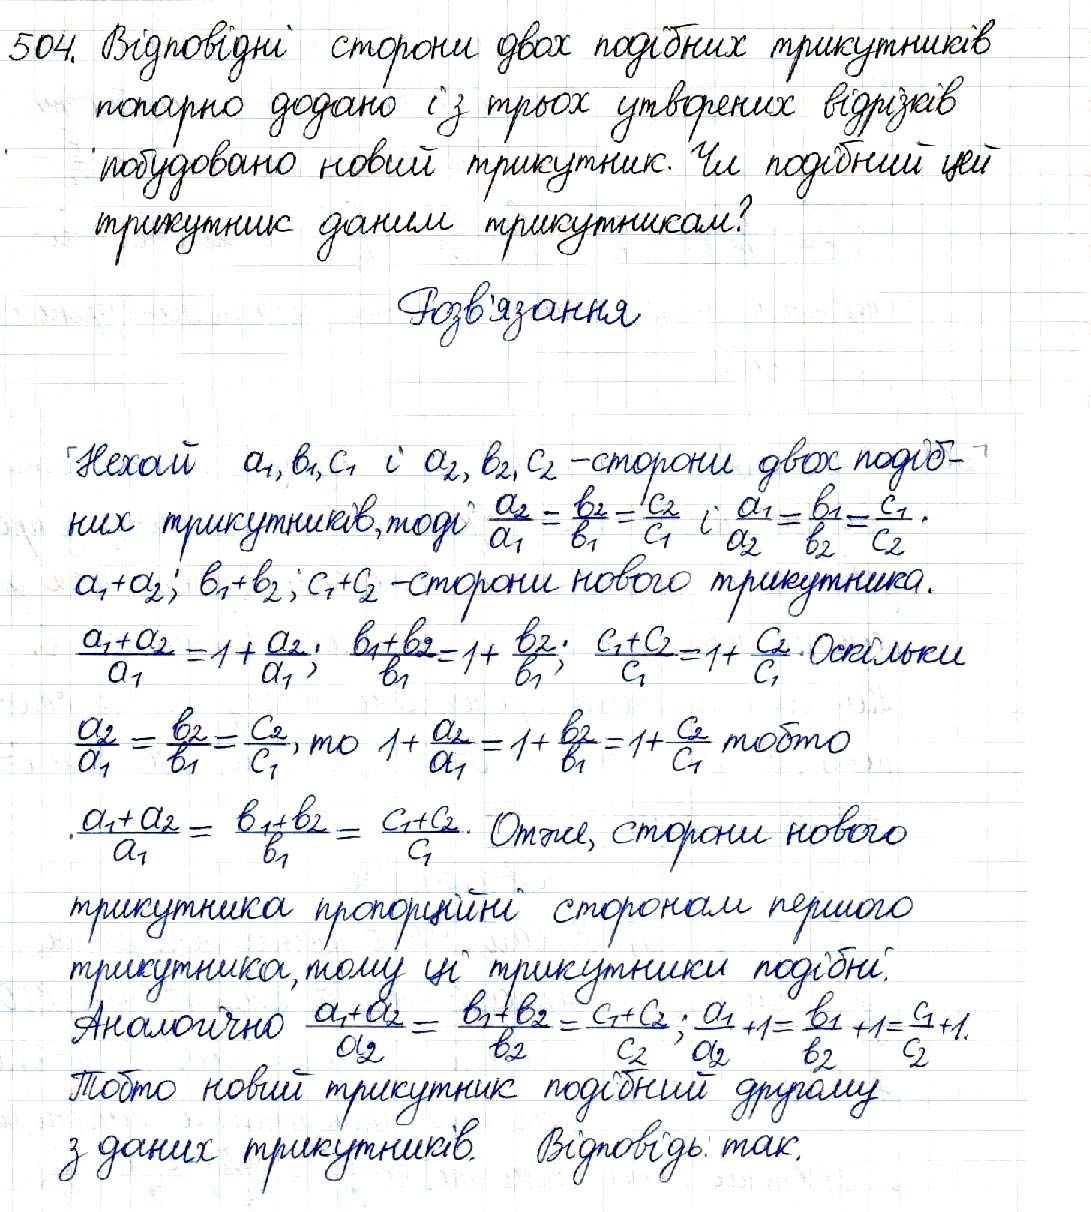 504. Відповідні сторони двох подібних трикутників
попарно додано і з трьох утворених відрізків
побудовано новий трикутник. Чи подібний цей
трикутник даним трикутникам?
Розв'язання
Нехай a₁, b₁, c₁ і a₂, b₂, c₂ – сторони двох подіб-
них трикутників, тоді a₂/a₁ = b₂/b₁ = c₂/c₁ і a₁/a₂ = b₁/b₂ = c₁/c₂.
a₁+a₂; b₁+b₂; c₁+c₂ – сторони нового трикутника.
(a₁+a₂)/a₁ = 1 + a₂/a₁; (b₁+b₂)/b₁ = 1 + b₂/b₁; (c₁+c₂)/c₁ = 1 + c₂/c₁. Оскільки
a₂/a₁ = b₂/b₁ = c₂/c₁, то 1 + a₂/a₁ = 1 + b₂/b₁ = 1 + c₂/c₁ тобто
(a₁+a₂)/a₁ = (b₁+b₂)/b₁ = (c₁+c₂)/c₁. Отже, сторони нового
трикутника пропорційні сторонам першого
трикутника, тому ці трикутники подібні.
Аналогічно (a₁+a₂)/a₂ = (b₁+b₂)/b₂ = (c₁+c₂)/c₂; a₁/a₂ + 1 = b₁/b₂ + 1 = c₁/c₂ + 1.
Тобто новий трикутник подібний другому
з даних трикутників. Відповідь: так.